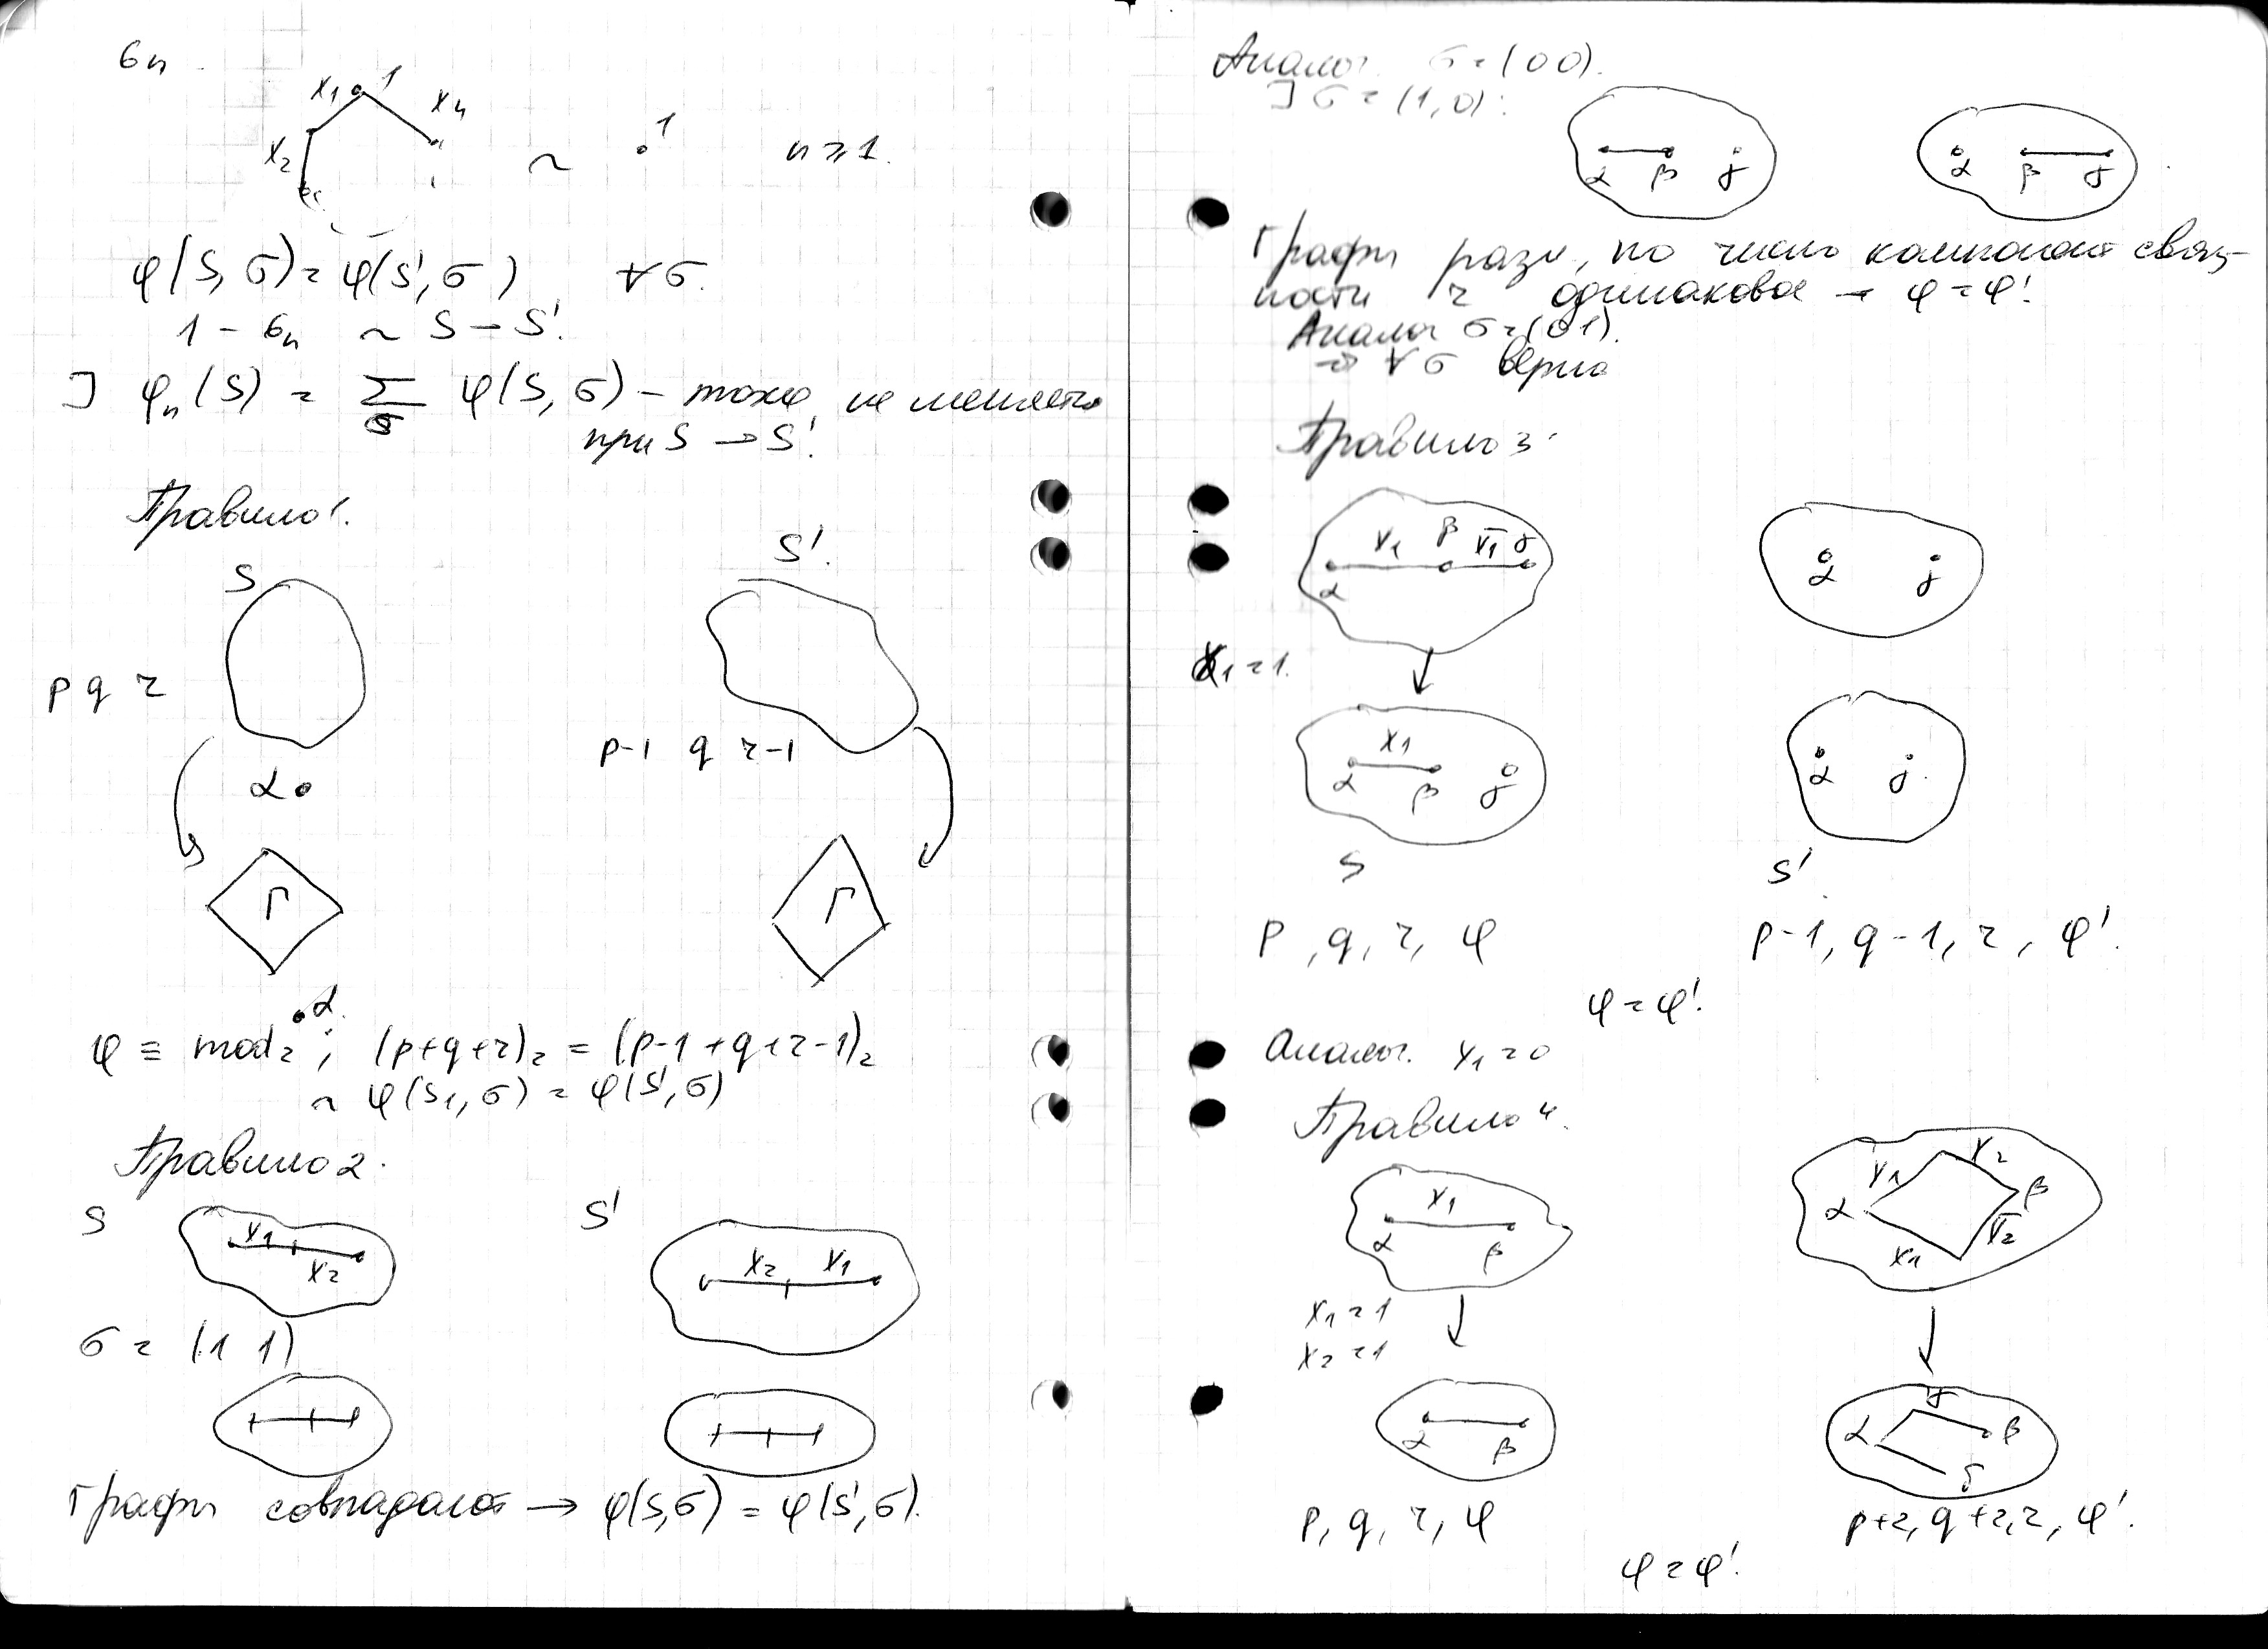 6n
x1 1 xn
x2 ~ 1 n ⩾ 1.
φ(S, σ) = φ(S', σ) ∀σ.
1 – 6n ~ S – S'.
] φn(S) = Σσ φ(S, σ) – тоже не меняется
при S → S'.
Правило 1.
S S'.
p q r
p-1 q r-1
α
Г Г
α
φ ≡ mod2; (p+q+r)2 = (p-1+q+r-1)2
~ φ(S1, σ) = φ(S', σ)
Правило 2.
S S'
x1 x2 x2 x1
σ = (1 1)
Графы совпадают → φ(S,σ) = φ(S',σ).
Аналог. σ = (0 0).
] σ = (1, 0):
α β γ α β γ
Графы разн, но число компонент связ-
ности r одинаковое → φ = φ'.
Аналог σ = (0 1).
→ ∀σ верно
Правило 3.
x1 β x̄1 γ
α α γ
x1 = 1.
x1
α β γ α γ
S S'
p, q, r, φ p-1, q-1, r, φ'.
φ = φ'.
Аналог. x1 = 0
Правило 4.
x1 x1 x2
α β α β
x1 x̄2
x1 = 1
x2 = 1
γ
α β α β
δ
p, q, r, φ p+2, q+2, r, φ'.
φ = φ'.